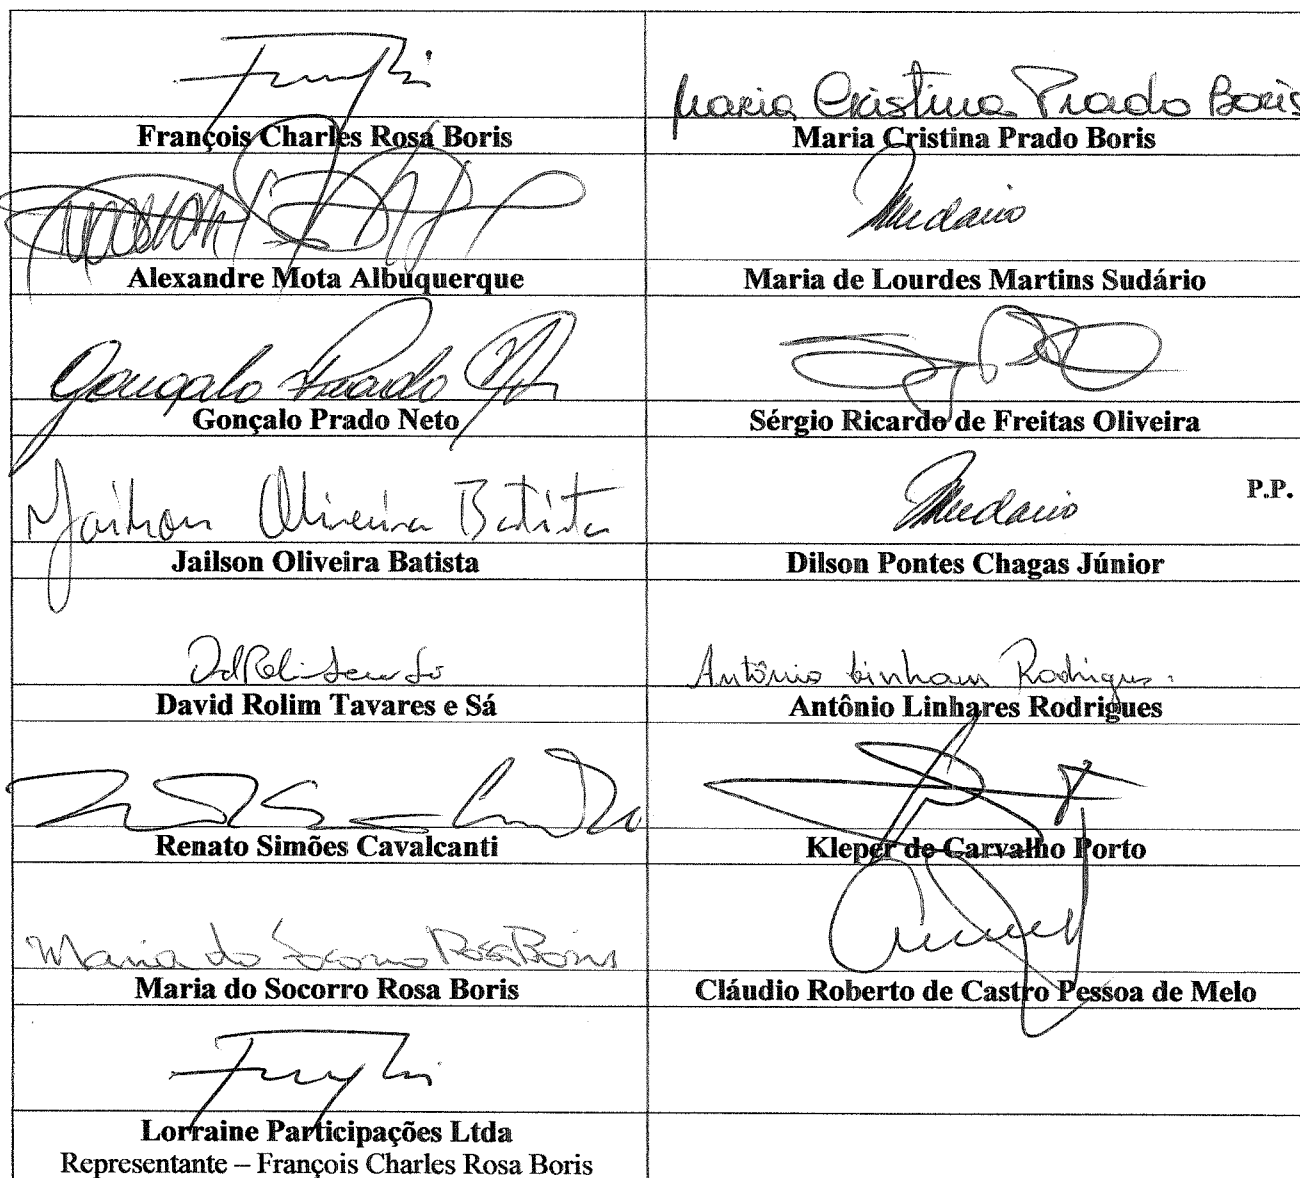 Maria Cristina Prado Boris
François Charles Rosa Boris
Maria Cristina Prado Boris
Alexandre Mota Albuquerque
Maria de Lourdes Martins Sudário
Gonçalo Prado
Gonçalo Prado Neto
Sérgio Ricardo de Freitas Oliveira
Jailson Oliveira Batista
P.P.
Jailson Oliveira Batista
Dilson Pontes Chagas Júnior
Antônio Linhares Rodrigues
David Rolim Tavares e Sá
Antônio Linhares Rodrigues
Renato Simões Cavalcanti
Kleper de Carvalho Porto
Maria do Socorro Rosa Boris
Maria do Socorro Rosa Boris
Cláudio Roberto de Castro Pessoa de Melo
Lorraine Participações Ltda
Representante – François Charles Rosa Boris